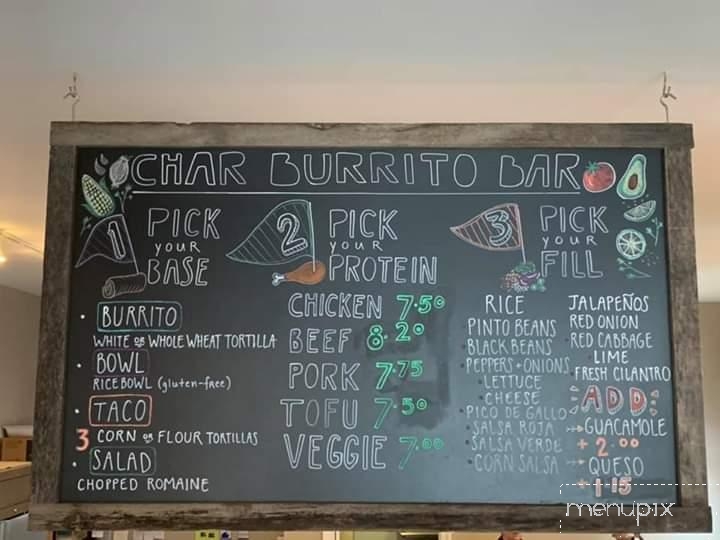 CHAR BURRITO BAR
1
PICK
your
BASE
BURRITO
WHITE OR WHOLE WHEAT TORTILLA
BOWL
RICE BOWL (gluten-free)
TACO
3 CORN OR FLOUR TORTILLAS
SALAD
CHOPPED ROMAINE
2
PICK
your
PROTEIN
CHICKEN 7.50
BEEF 8.20
PORK 7.75
TOFU 7.50
VEGGIE 7.00
3
PICK
your
FILL
RICE
PINTO BEANS
BLACK BEANS
PEPPERS + ONIONS
LETTUCE
CHEESE
PICO DE GALLO
SALSA ROJA
SALSA VERDE
CORN SALSA
JALAPEÑOS
RED ONION
RED CABBAGE
LIME
FRESH CILANTRO
ADD
GUACAMOLE
+ 2.00
QUESO
+ 1.15
menupix